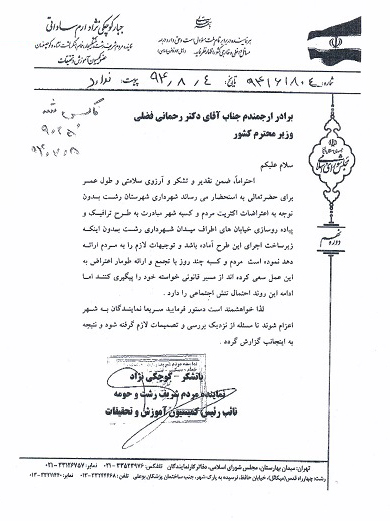 جبار کوچکی نژاد ارم ساداتی
شماره: ۹۴/۶۱۸۰۴ تاریخ: ۹۴،۸،۴ پیوست: ندارد
برادر ارجمندم جناب آقای دکتر رحمانی فضلی
وزیر محترم کشور
سلام علیکم
احتراماً، ضمن تقدیر و تشکر و آرزوی سلامتی و طول عمر
برای حضرتعالی به استحضار می رساند شهرداری شهرستان رشت بدون
توجه به اعتراضات اکثریت مردم و کسبه شهر مبادرت به طرح ترافیک و
پیاده روسازی خیابان های اطراف میدان شهرداری رشت بدون اینکه
زیرساخت اجرای این طرح آماده باشد و توجیهات لازم را به مردم ارائه
دهد نموده است مردم و کسبه چند روز با تجمع و ارائه طومار اعتراض به
این عمل سعی کرده اند از مسیر قانونی خواسته خود را پیگیری کنند اما
ادامه این روند احتمال تنش اجتماعی را دارد.
لذا خواهشمند است دستور فرمایید سریعا نمایندگان به شهر
اعزام شوند تا مسئله از نزدیک بررسی و تصمیمات لازم گرفته شود و نتیجه
به اینجانب گزارش گردد.
باتشکر - کوچکی نژاد
نماینده مردم شریف رشت و حومه
نائب رئیس کمیسیون آموزش و تحقیقات
مجلس شورای اسلامی
دوره نهم
تهران: میدان بهارستان، مجلس شورای اسلامی، دفاتر کار نمایندگان
رشت: چهارراه قدس (میکائیل)، خیابان حافظ، نرسیده به پارک شهر، جنب ساختمان پزشکان بوعلی